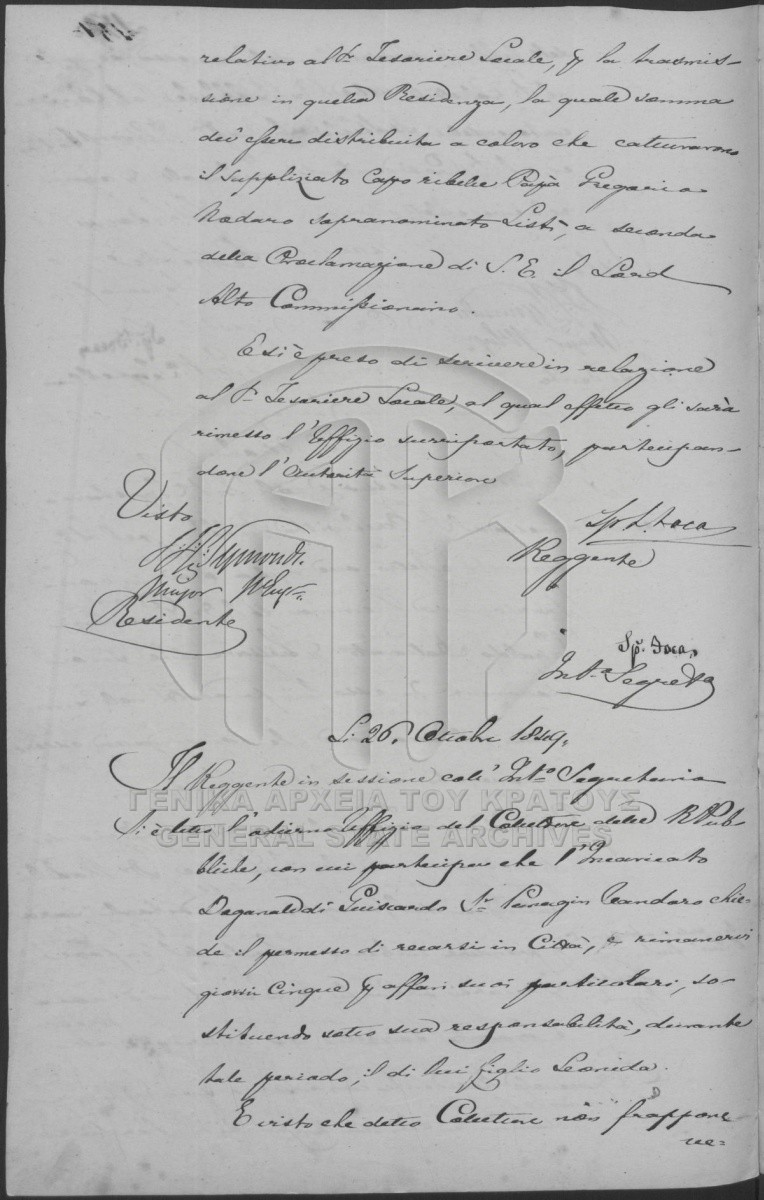 relativo al Sr. Tesoriere Locale, p la trasmis-
sione in quella Residenza, la quale somma
dev'essere distribuita a coloro che catturarono
il suppliziato Capo ribelle Papà Gregorio
Nodaro sopranominato Listì, a seconda
della Proclamazione di S. E. il Lord
Alto Commissionario.
E si è preso di scrivere in relazione
al Sr. Tesoriere Locale, al qual effetto gli sarà
rimesso l'Uffizio surriportato, partecipan-
done l'Autorità Superiore
Visto
Major
Residente
Sp. Foca
Reggente
Sp. Foca,
Int.o Segret.o
Li 26. Ottobre 1849.
Il Reggente in sessione coll' Int.o Segretario
Si è letto l'odierno Uffizio del Collettore delle R. Pub-
bliche, con cui partecipa che l'Incaricato
Doganale di Guiscardo Sr. Panagin Vandoro chie-
de il permesso di recarsi in Città, e rimanervi
giorni Cinque p affari suoi particolari, so-
stituendo sotto sua responsabilità, durante
tale periodo, il di lui figlio Leonida.
E visto che detto Collettore non frappone
ve=
ΓΕΝΙΚΑ ΑΡΧΕΙΑ ΤΟΥ ΚΡΑΤΟΥΣ
GENERAL STATE ARCHIVES